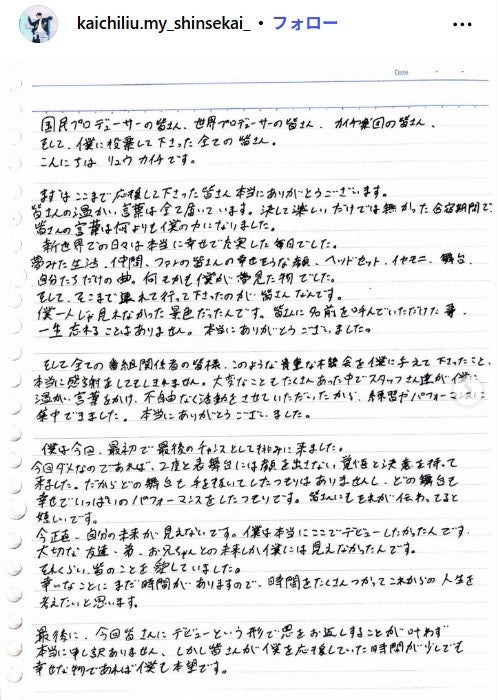 kaichiliu.my_shinsekai_ • フォロー
Date
国民プロデューサーの皆さん、世界プロデューサーの皆さん、カイチ楽団の皆さん、
そして、僕に投票して下さった全ての皆さん。
こんにちは リュウ カイチです。
まずはここまで応援して下さった皆さん本当にありがとうございます。
皆さんの温かい言葉は全て届いています。決して楽しいだけでは無かった合宿期間で、
皆さんの言葉は何よりも僕の力になりました。
新世界での日々は本当に幸せで充実した毎日でした。
夢みた生活、仲間、ファンの皆さんの幸せそうな顔、ヘッドセット、イヤモニ、舞台、
自分たちだけの曲。何もかも僕が夢見た物でした。
そして、そこまで連れて行って下さったのが皆さんなんです。
僕一人じゃ見れなかった景色だったんです。皆さんに名前を呼んでいただけた事、
一生忘れることはありません。本当にありがとうございました。
そして全ての番組関係者の皆様、このような貴重な機会を僕に与えて下さったこと、
本当に感謝をしてもしきれません。大変なこともたくさんあった中でスタッフさん達が僕に
温かい言葉をかけ、不自由なく活動をさせていただいたから、練習やパフォーマンスに
集中できました。本当にありがとうございました。
僕は今回、最初で最後のチャンスとして挑みに来ました。
今回ダメなのであれば、2度と表舞台には顔を出さない覚悟と決意を持って
来ました。だからどの舞台も手を抜いてしたつもりはありませんし、どの舞台も
幸せでいっぱいのパフォーマンスをしたつもりです。皆さんにもそれが伝わってると
嬉しいです。
今正直、自分の未来が見えないです。僕は本当にここでデビューしたかったんです。
大切な友達、弟、お兄ちゃんとの未来しか僕には見えなかったんです。
それくらい、皆のことを愛していました。
幸いなことにまだ時間がありますので、時間をたくさんつかってこれからの人生を
考えたいと思います。
最後に、今回皆さんにデビューという形で恩をお返しすることが叶わず
本当に申し訳ありません、しかし皆さんが僕を応援していた時間が少しでも
幸せな物であれば僕も本望です。